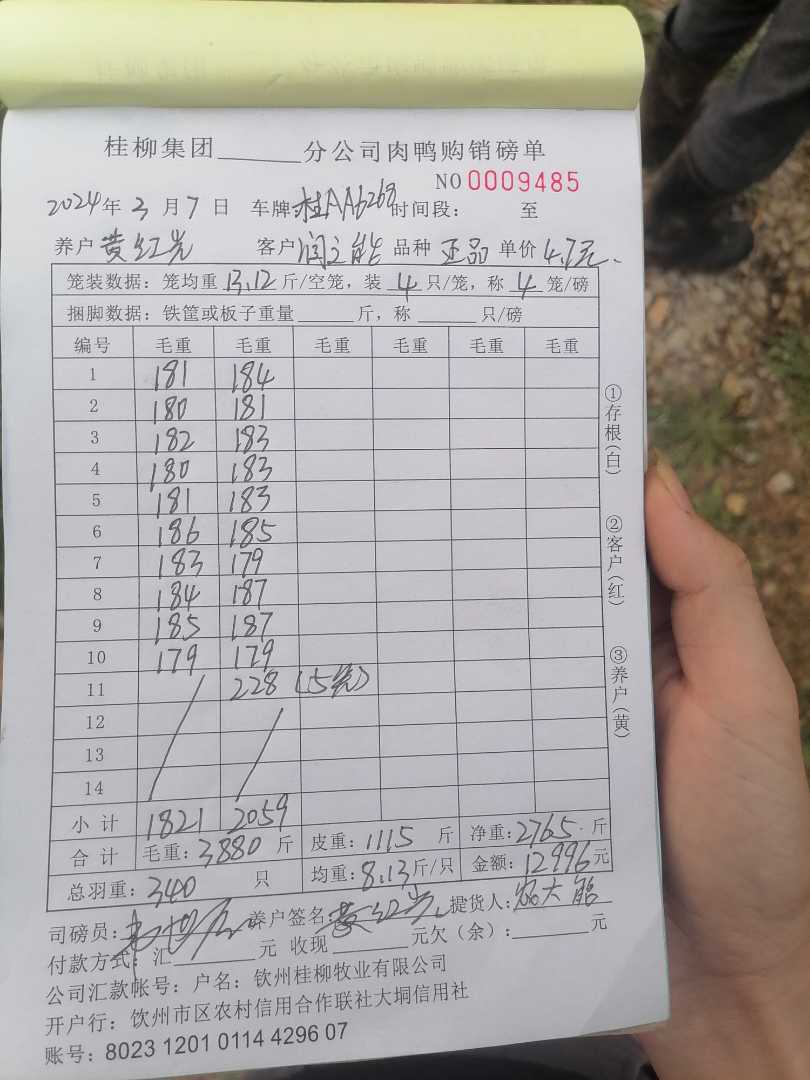 桂柳集团______分公司肉鸭购销磅单
NO 0009485
2024年 3 月 7 日 车牌:桂AA6268 时间段: 至
养户 黄红光 客户 润之能 品种 正品 单价 4.7元
笼装数据:笼均重 13.12 斤/空笼,装 4 只/笼,称 4 笼/磅
捆脚数据:铁筐或板子重量______斤,称______只/磅
编号 毛重 毛重 毛重 毛重 毛重 毛重
1 181 184
2 180 181
3 182 183
4 180 183
5 181 183
6 186 185
7 183 179
8 184 187
9 185 187
10 179 179
11 228 (5笼)
12
13
14
小计 1821 2059
合计 毛重:3880 斤 皮重:1115 斤 净重:2765 斤
总羽重:340 只 均重:8.13斤/只 金额:12996元
司磅员: 养户签名:黄红光 提货人:
付款方式:汇______元 收现______元欠(余):______元
公司汇款帐号:户名:钦州桂柳牧业有限公司
开户行:钦州市区农村信用合作联社大垌信用社
账号:8023 1201 0114 4296 07
①存根(白)
②客户(红)
③养户(黄)